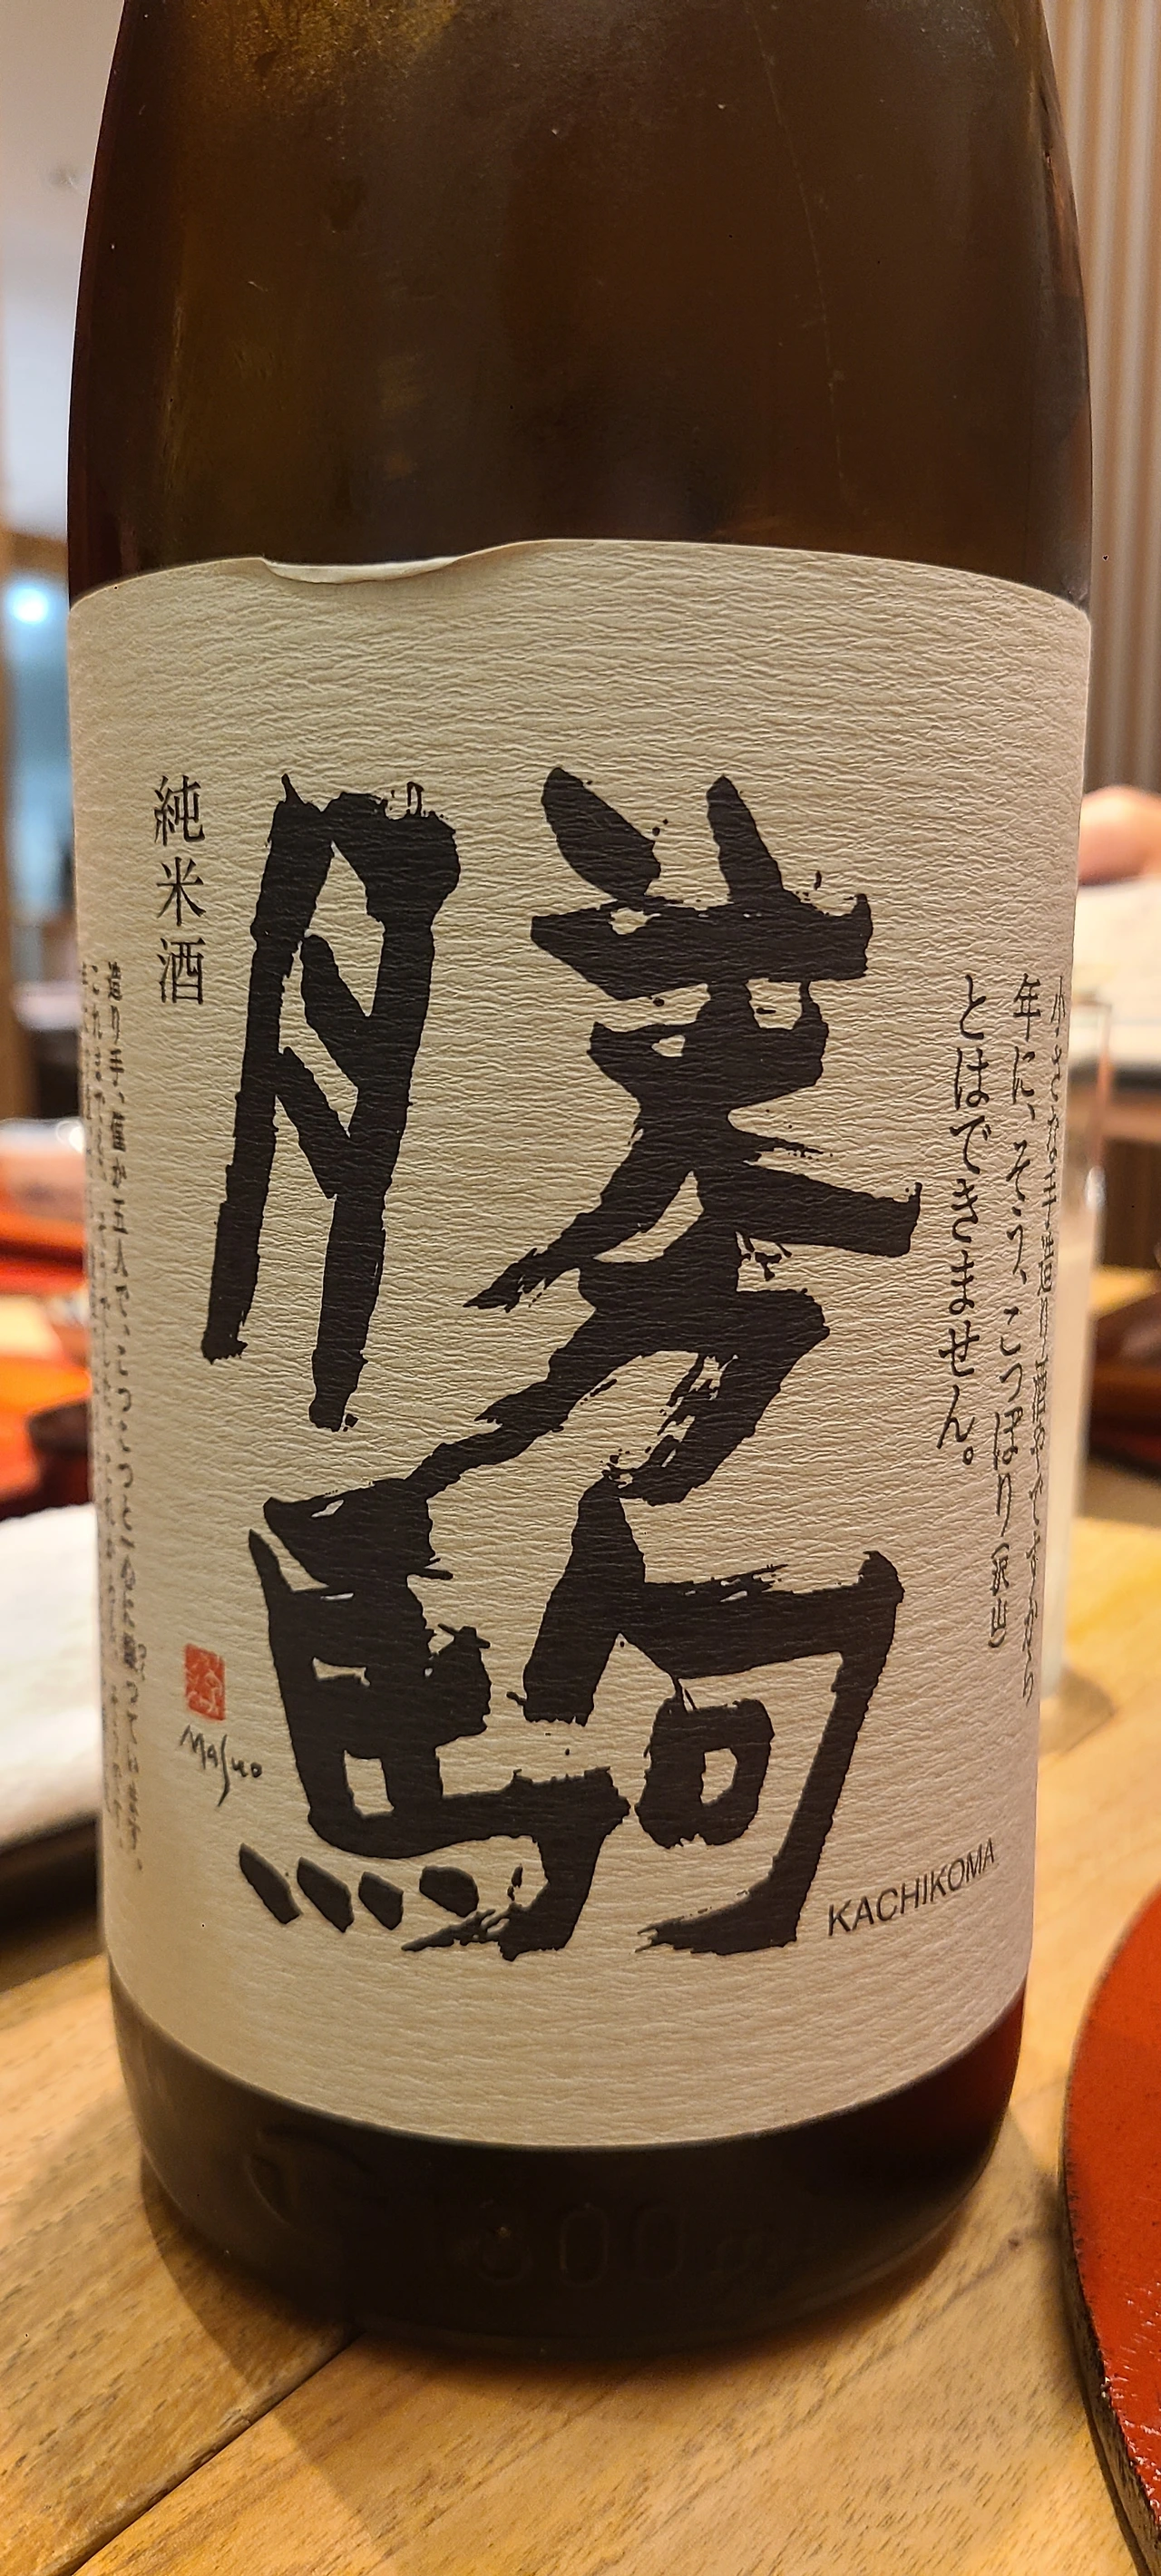 小さな手造り酒屋ですから
年に、そう、こっぽり（沢山）
とはできません。
勝駒
KACHIKOMA
純米酒
Masuo
造り手は僅か五人で、こつこつと
1800